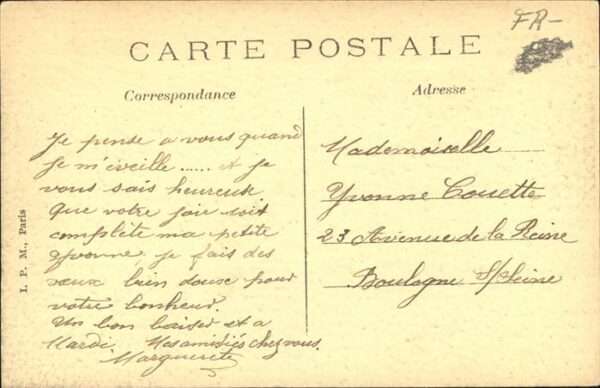 FR-
CARTE POSTALE
Correspondance
Adresse
Je pense a vous quand
je m'éveille ...... et je
vous sais heureuse
Que votre joie soit
complète ma petite
Yvonne je fais des
vœux bien doux pour
votre bonheur.
Un bon baiser et a
Mardi. Mes amitiés chez vous.
Marguerite
Mademoiselle
Yvonne Couette
23 Avenue de la Reine
Boulogne s/Seine
L. P. M., Paris